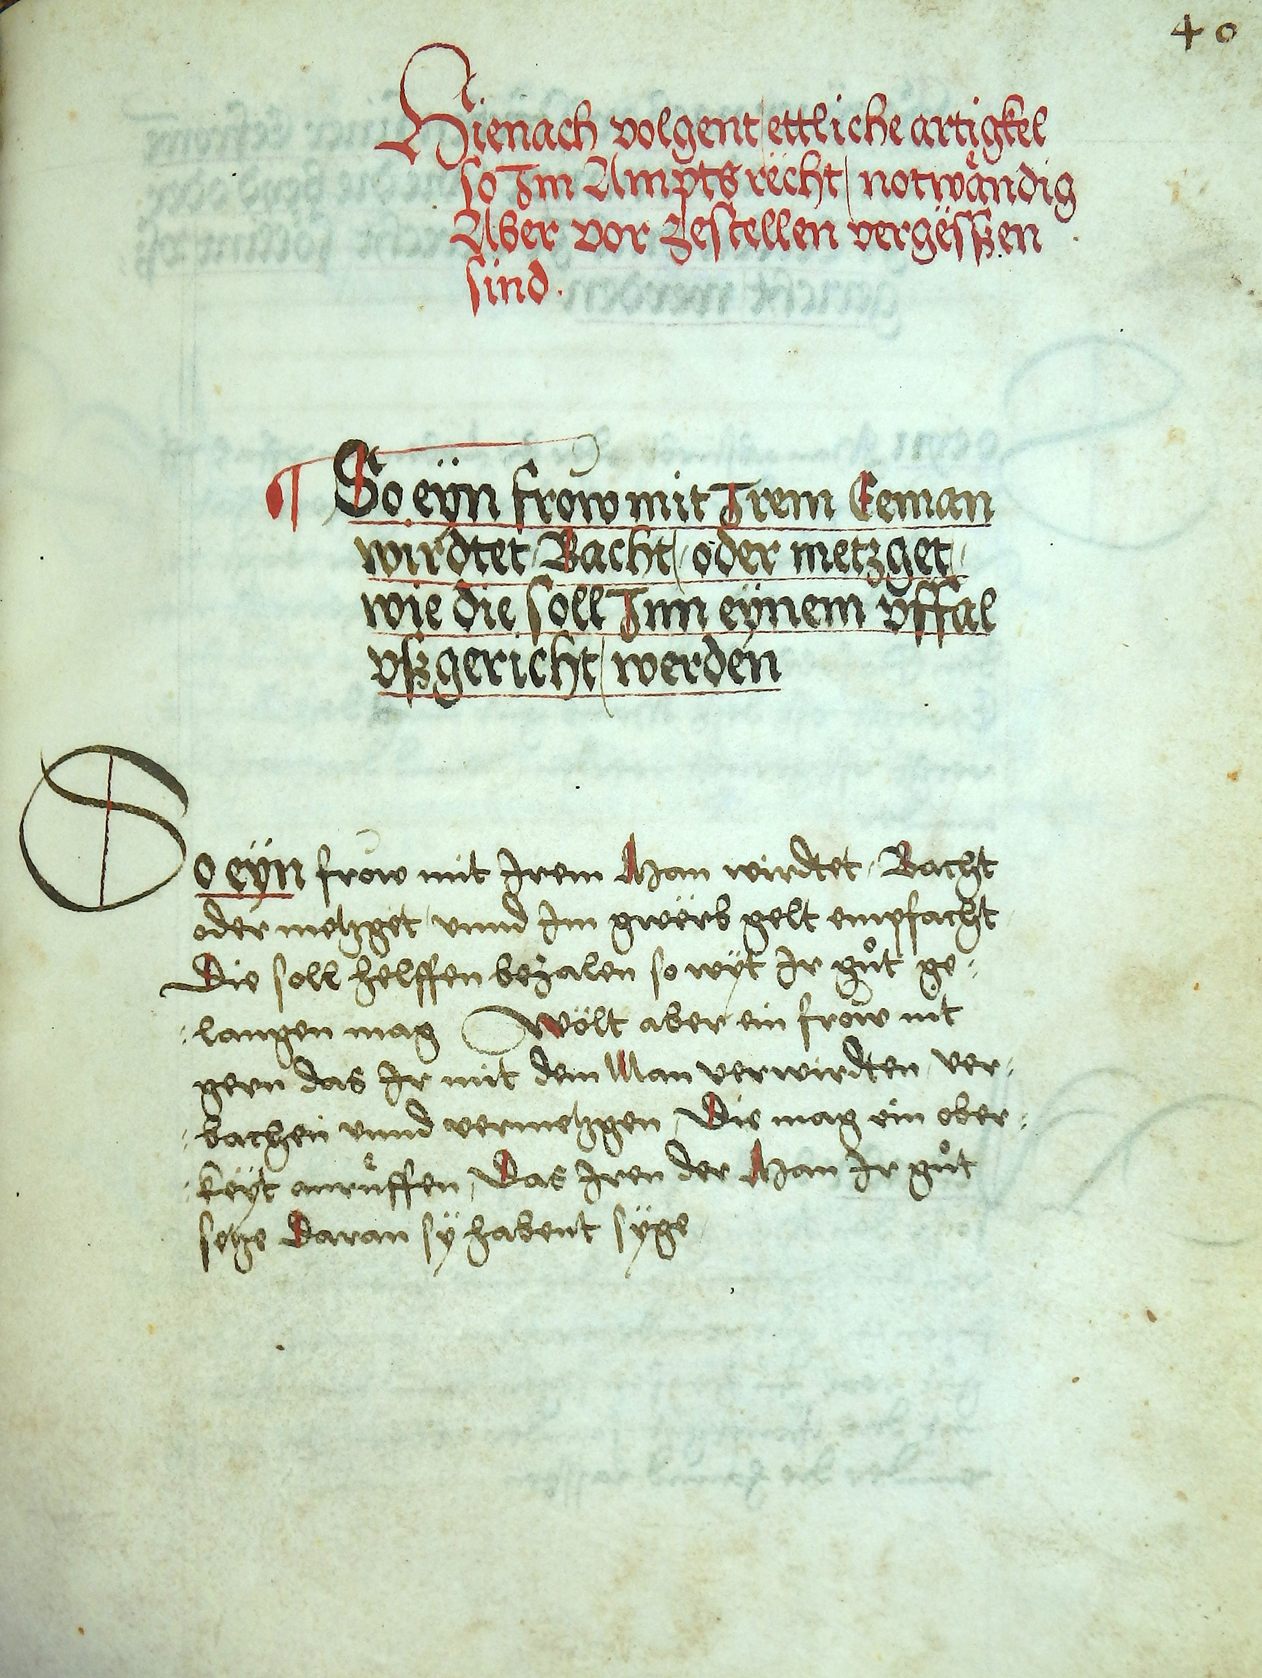 40
Hienach volgent ettliche artigkel
so Im Amptsrëcht notwåndig
Aber vor zestellen vergëssen
sind.
¶ So eÿn frow mit Irem Eeman
wirdtet / Bacht / oder metzget /
wie die soll Inn eÿnem vffal
vßgericht werden
So eÿn frow mit Irem Man wirdtet / Bacht
oder metzget / vnnd Im gwërb gelt empfacht
Die soll helffen bezalen so wÿt Ir gůt ge-
langen mag Wölt aber ein frow nit
gern das Ir mit dem Man verwirdten / ver-
bachen vnnd vermetzgen / Die mag ein ober-
keÿt anrůffen / Das Iren der Man Ir gůt
setze Daran sÿ habent sÿge